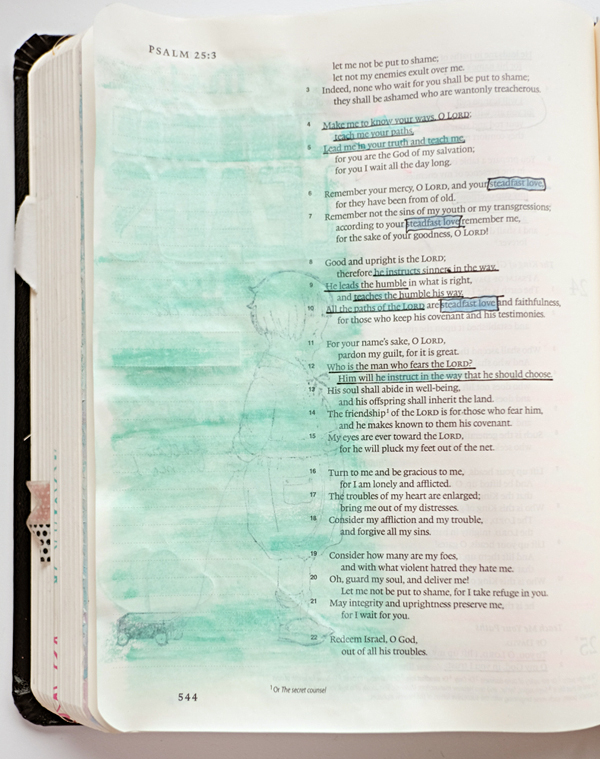 PSALM 25:3
let me not be put to shame;
let not my enemies exult over me.
3 Indeed, none who wait for you shall be put to shame;
they shall be ashamed who are wantonly treacherous.
4 Make me to know your ways, O LORD;
teach me your paths.
5 Lead me in your truth and teach me,
for you are the God of my salvation;
for you I wait all the day long.
6 Remember your mercy, O LORD, and your steadfast love,
for they have been from of old.
7 Remember not the sins of my youth or my transgressions;
according to your steadfast love remember me,
for the sake of your goodness, O LORD!
8 Good and upright is the LORD;
therefore he instructs sinners in the way.
9 He leads the humble in what is right,
and teaches the humble his way.
10 All the paths of the LORD are steadfast love and faithfulness,
for those who keep his covenant and his testimonies.
11 For your name's sake, O LORD,
pardon my guilt, for it is great.
12 Who is the man who fears the LORD?
Him will he instruct in the way that he should choose.
13 His soul shall abide in well-being,
and his offspring shall inherit the land.
14 The friendship¹ of the LORD is for those who fear him,
and he makes known to them his covenant.
15 My eyes are ever toward the LORD,
for he will pluck my feet out of the net.
16 Turn to me and be gracious to me,
for I am lonely and afflicted.
17 The troubles of my heart are enlarged;
bring me out of my distresses.
18 Consider my affliction and my trouble,
and forgive all my sins.
19 Consider how many are my foes,
and with what violent hatred they hate me.
20 Oh, guard my soul, and deliver me!
Let me not be put to shame, for I take refuge in you.
21 May integrity and uprightness preserve me,
for I wait for you.
22 Redeem Israel, O God,
out of all his troubles.
¹ Or The secret counsel
544